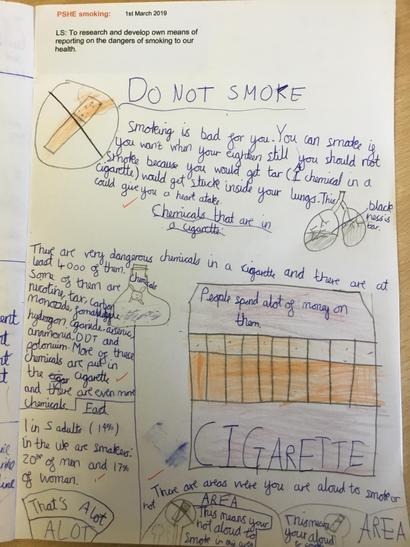 PSHE smoking: 1st March 2019
LS: To research and develop own means of
reporting on the dangers of smoking to our
health.
DO NOT SMOKE
Smoking is bad for you. You can smoke if
you want when your eighteen still you should not
smoke because you would get tar (1 chemical in a
cigarette) would get stuck inside your lungs. This
could give you a heart atake.
black
ness is
tar.
Chemicals that are in
a cigarette
There are very dangerous chemicals in a cigarette and there are at
least 4000 of them.
Some of them are
nicotine, tar, carbon
monoxide,
hydrogen, cyanide, arsenic,
ammonia, DDT and
polonium. More of these
chemicals are put in
the cigarette
and there are even more
chemicals.
Chemicals
People spend alot of money on
them
CIGARETTE
Fact
1 in 5 adults (19%)
In the uk are smokers:
20% of men and 17%
of women.
That's Alot
ALOT
There are areas were you are aloud to smoke or
not
AREA
This means your
not aloud to
smoke in this area
This means
your aloud
AREA